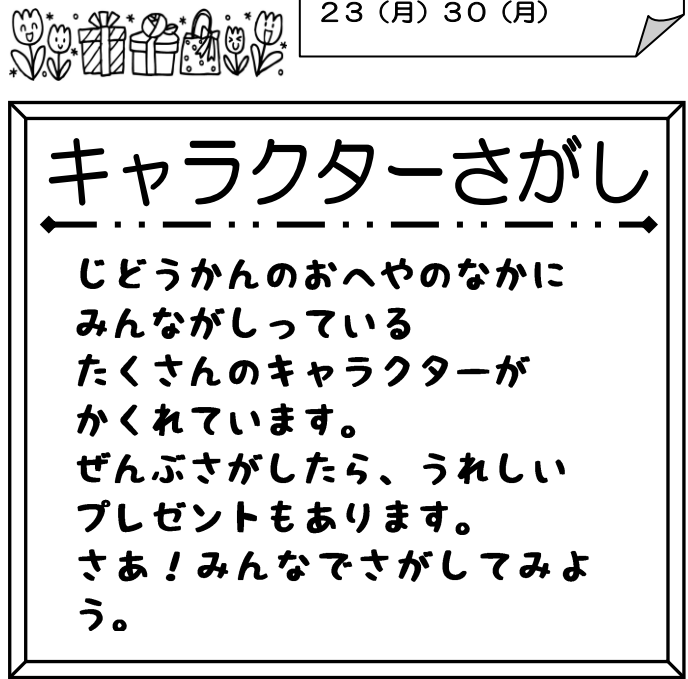 23（月）30（月）
キャラクターさがし
じどうかんのおへやのなかに
みんながしっている
たくさんのキャラクターが
かくれています。
ぜんぶさがしたら、うれしい
プレゼントもあります。
さあ！みんなでさがしてみよ
う。